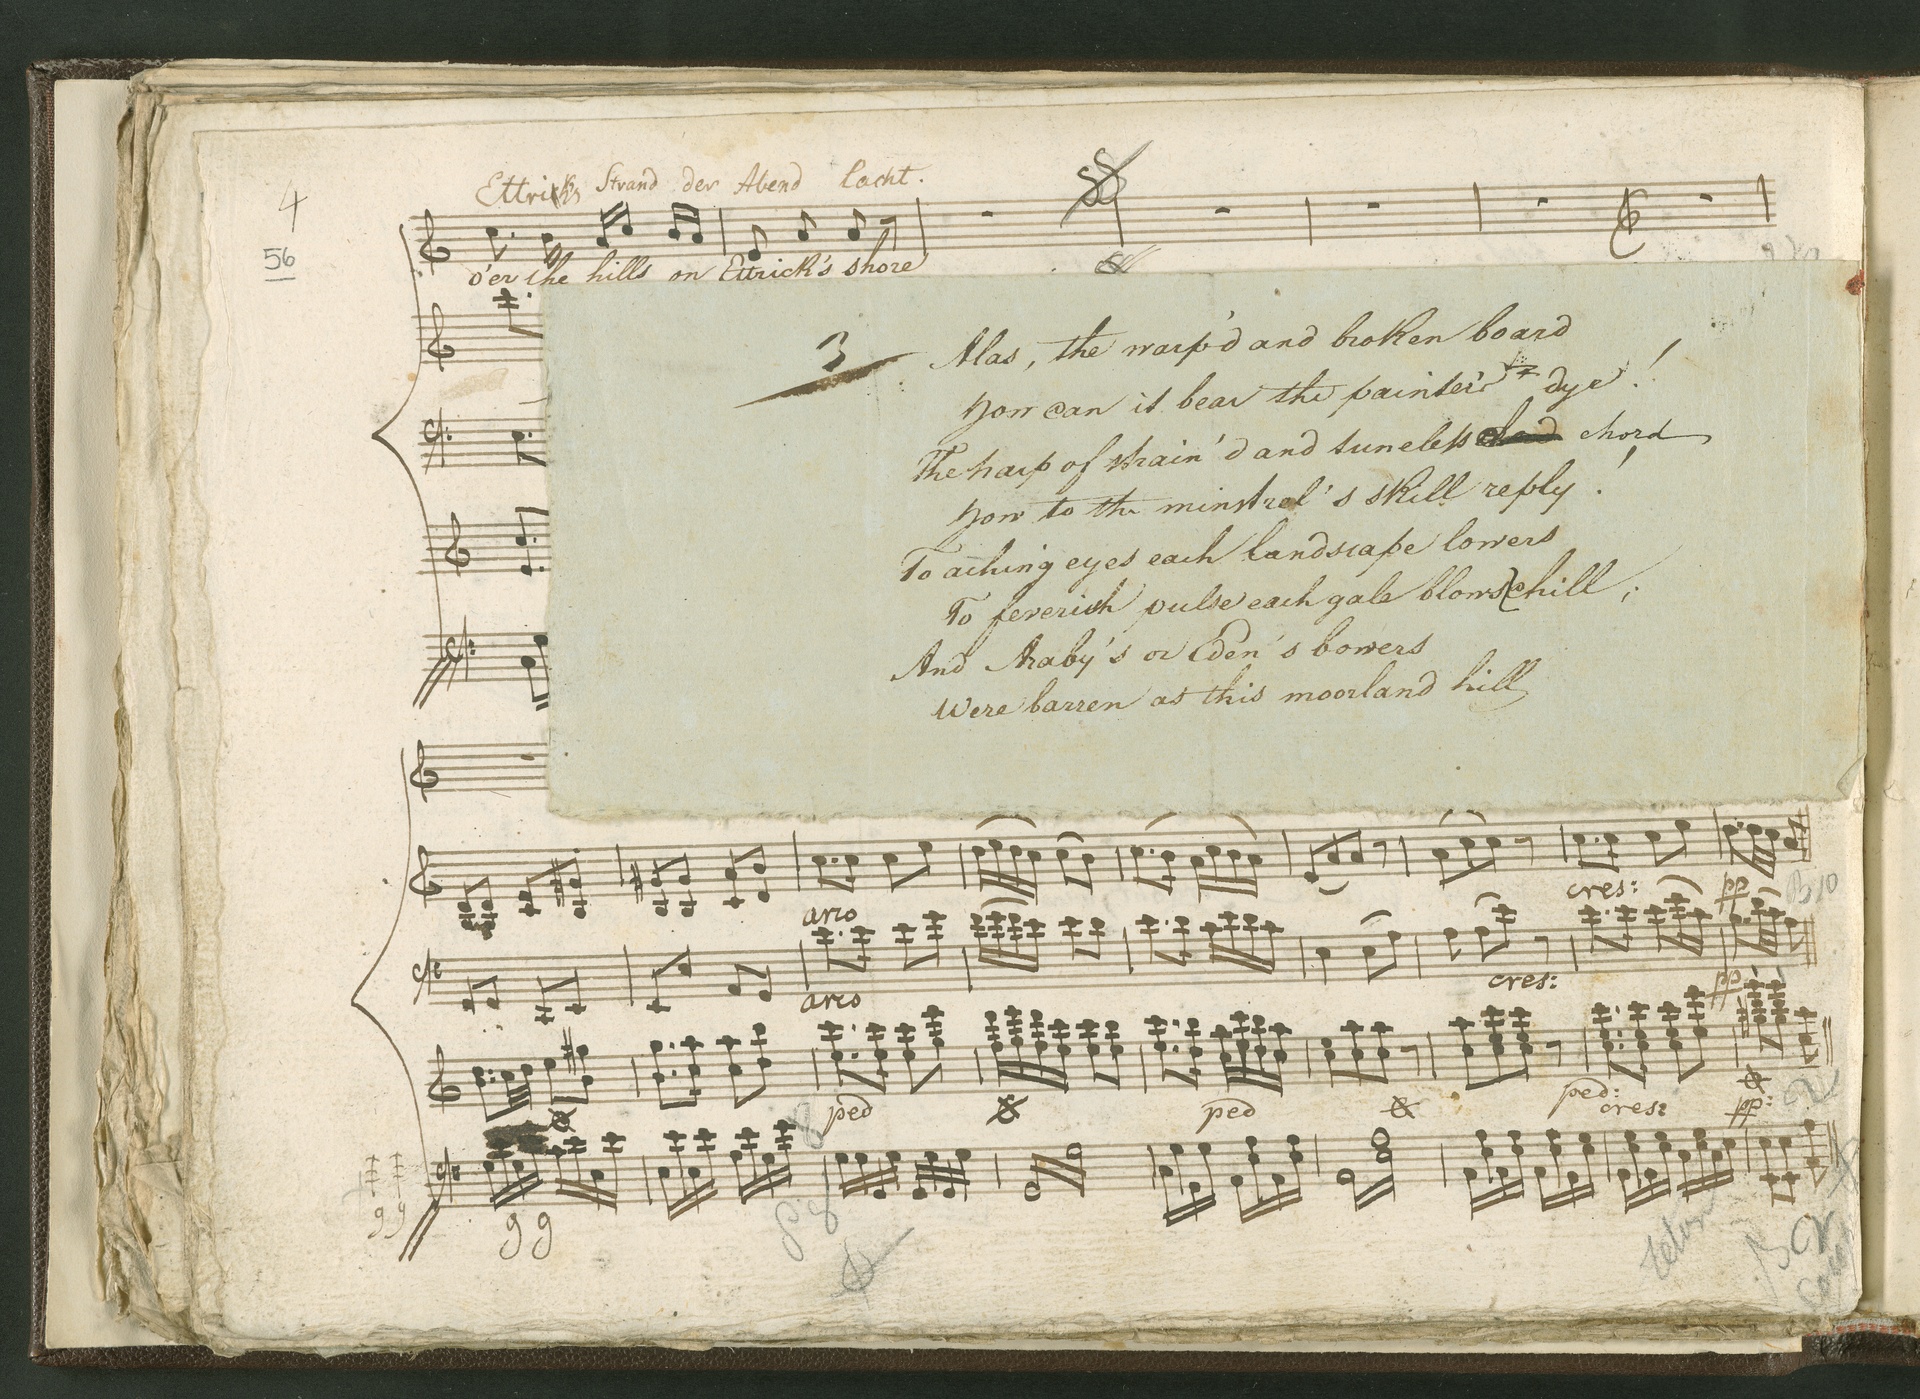 4
Ettricks Strand der Abend lacht.
56
o'er the hills on Ettrick's shore
3
Alas, the warp'd and broken board
How can it bear the painter's dye!
The harp of strain'd and tuneless chord
How to the minstrel's skill reply!
To aching eyes each landscape lowers
To feverish pulse each gale blows chill;
And Araby's or Eden's bowers
Were barren as this moorland hill
cres:
pp
B10
arco
cres:
pp
arco
ped
ped
ped:
cres:
pp:
g g
g g